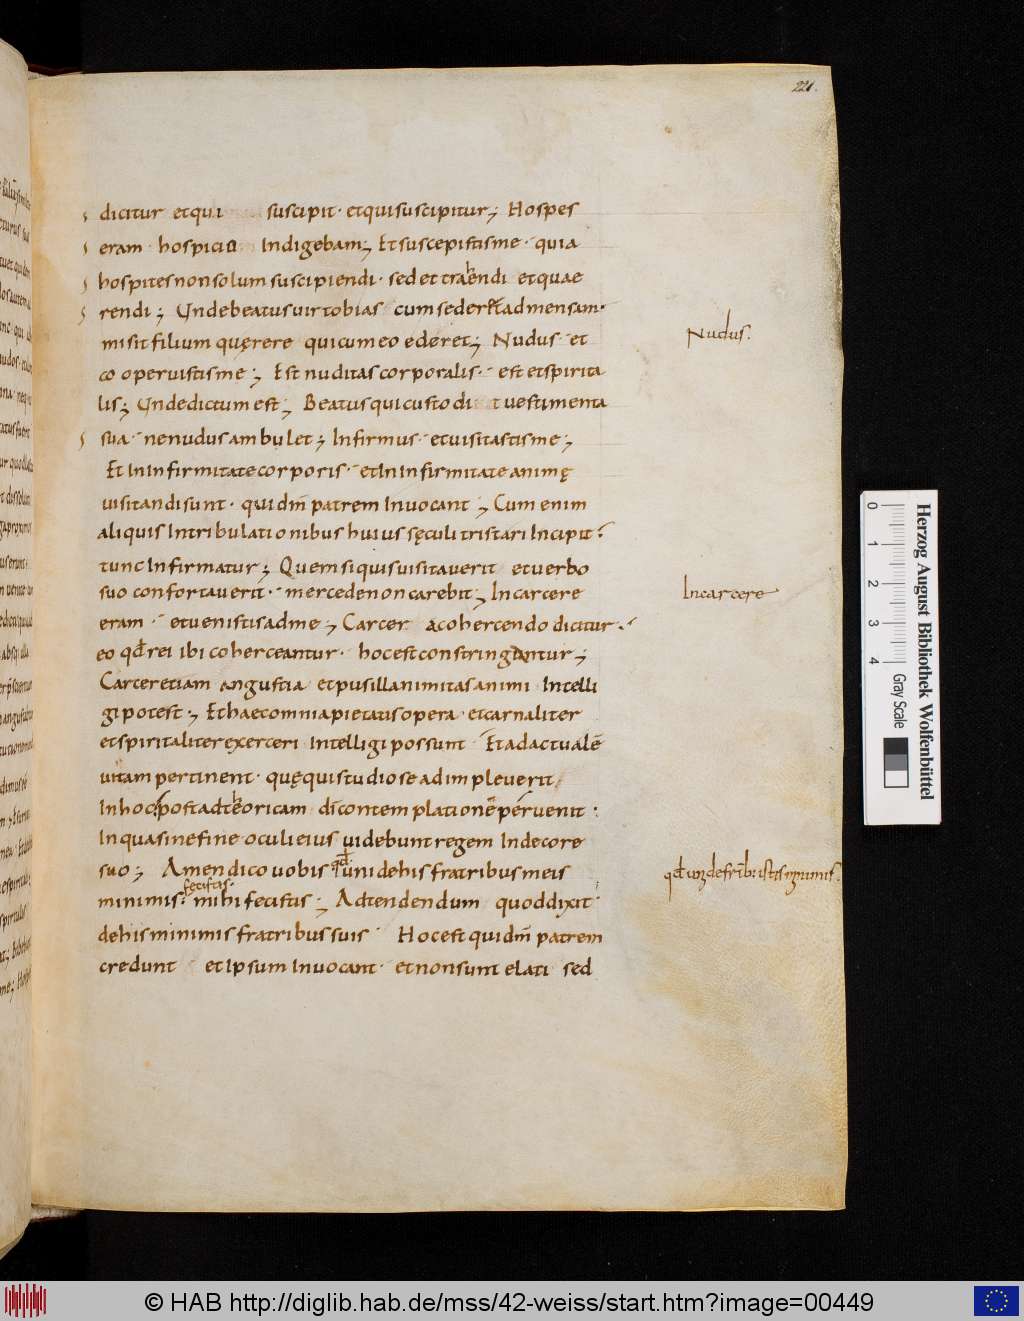 221.
dicitur et qui suscipit · et qui suscipitur; Hospes
eram · hospicio Indigebam; Et suscepistis me · quia
hospites non solum suscipiendi · sed et trahendi et quae
rendi; Unde beatus uir tobias cum sederet ad mensam ·
misit filium quęrere qui cum eo ederet; Nudus · et
co operuistis me; Est nuditas corporalis · est et spirita
lis; Unde dictum est; Beatus qui custodit uestimenta
sua · ne nudus ambulet; Infirmus · et uisitastis me;
Et In Infirmitate corporis · et In Infirmitate animę
uisitandi sunt · qui dm̄ patrem Inuocant; Cum enim
aliquis Intribulationibus huius sęculi tristari Incipit ·
tunc Infirmatur; Quem si quis uisitauerit et uerbo
suo confortauerit · mercede non carebit; In carcere
eram · et uenistis ad me; Carcer a cohercendo dicitur ·
eo qđ rei ibi coherceantur · hoc est constringantur;
Carcer etiam angustia et pusillanimitas animi Intelli
gi potest; Et haec omnia pietatis opera · et carnaliter
et spiritaliter exerceri Intelligi possunt Et ad actualē
uitam pertinent · quę qui studiose adimpleuerit
In hoc post ad theoricam · di contemplationē peruenit :
In qua sine fine oculi eius uidebunt regem In decore
suo; Amen dico uobis qđ uni de his fratribus meis
minimis fecistis · mihi fecistis; Adtendendum quod dixit
de his minimis fratribus suis · Hoc est qui dm̄ patrem
credunt et Ipsum Inuocant · et non sunt elati sed
Nudus.
In carcere
Herzog August Bibliothek Wolfenbüttel
0 1 2 3 4 Gray Scale
© HAB http://diglib.hab.de/mss/42-weiss/start.htm?image=00449